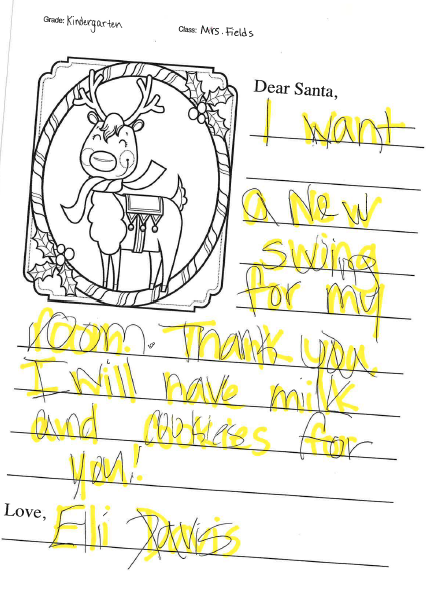 Grade: Kindergarten
Class: Mrs. Fields
Dear Santa,
I want
a New
swing
for my
room. Thank you.
I will have milk
and cookies for
you!
Love,
Eli Davis